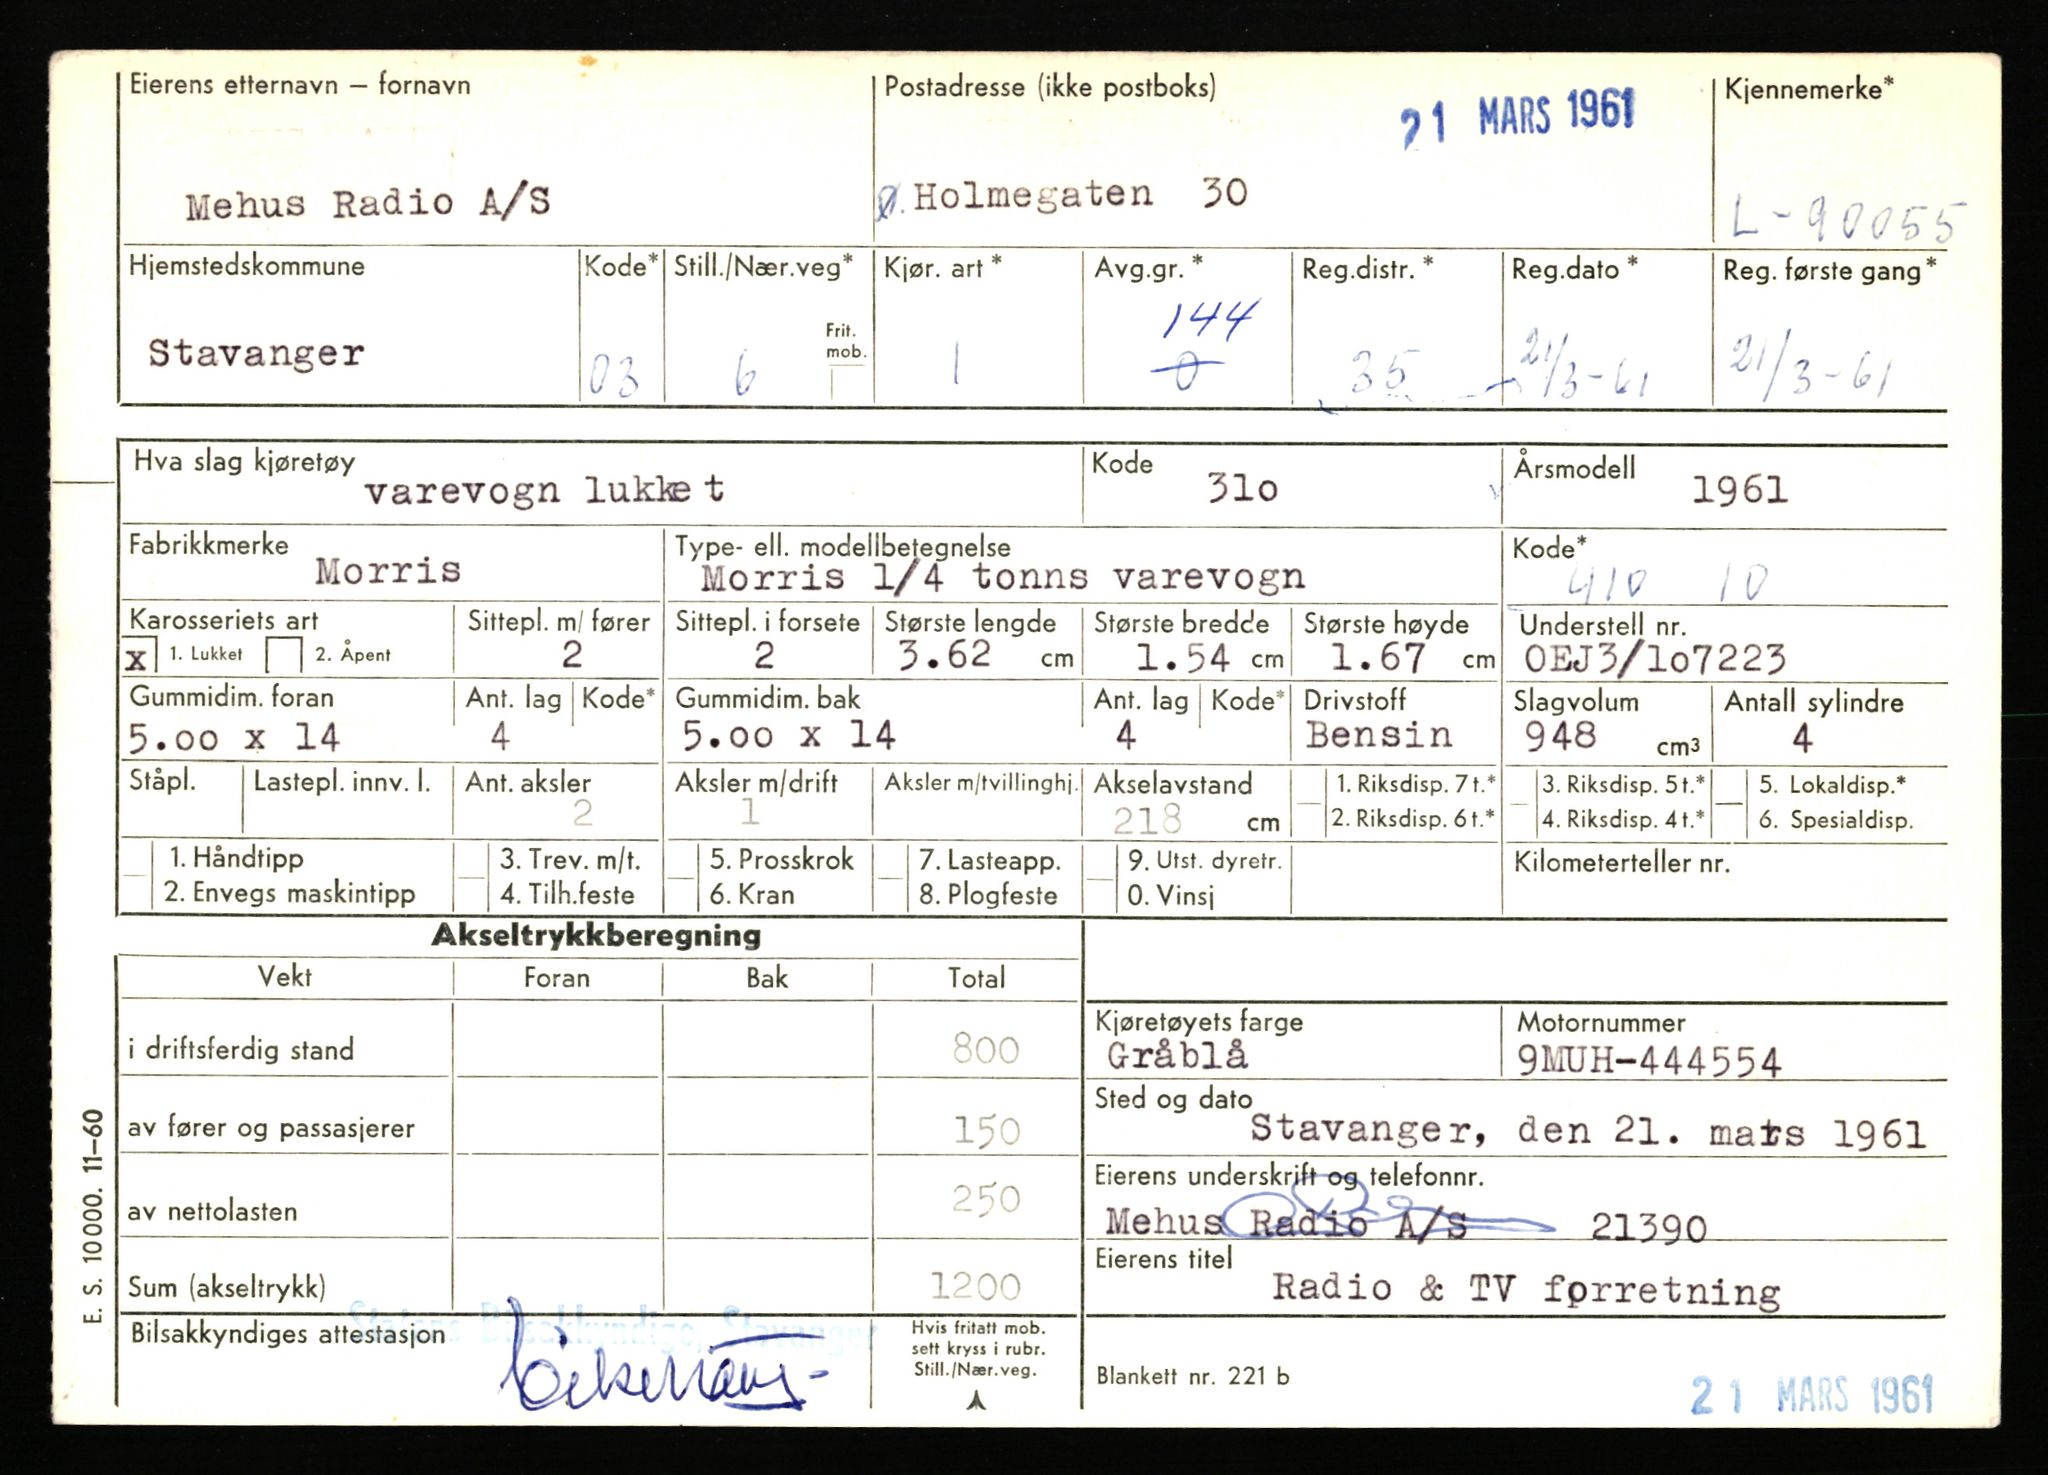 Eierens etternavn – fornavn Postadresse (ikke postboks) 21 MARS 1961 Kjennemerke*
Mehus Radio A/S Ø. Holmegaten 30 L-90055
Hjemstedskommune Kode* Still./Nær.veg* Kjør. art * Avg.gr. * Reg.distr. * Reg.dato * Reg. første gang*
144
Stavanger 03 6 Frit. mob. 1 0 35 21/3-61 21/3-61
Hva slag kjøretøy Kode Årsmodell
varevogn lukket 31o 1961
Fabrikkmerke Type- ell. modellbetegnelse Kode*
Morris Morris 1/4 tonns varevogn 410 10
Karosseriets art Sittepl. m/ fører Sittepl. i forsete Største lengde Største bredde Største høyde Understell nr.
x 1. Lukket 2. Åpent 2 2 3.62 cm 1.54 cm 1.67 cm OEJ3/1o7223
Gummidim. foran Ant. lag Kode* Gummidim. bak Ant. lag Kode* Drivstoff Slagvolum Antall sylindre
5.oo x 14 4 5.oo x 14 4 Bensin 948 cm3 4
Ståpl. Lastepl. innv. l. Ant. aksler Aksler m/drift Aksler m/tvillinghj. Akselavstand 1. Riksdisp. 7 t.* 3. Riksdisp. 5 t.* 5. Lokaldisp.*
2 1 218 cm 2. Riksdisp. 6 t.* 4. Riksdisp. 4 t.* 6. Spesialdisp.
1. Håndtipp 3. Trev. m/t. 5. Prosskrok 7. Lasteapp. 9. Utst. dyretr. Kilometerteller nr.
2. Envegs maskintipp 4. Tilh.feste 6. Kran 8. Plogfeste 0. Vinsj
Akseltrykkberegning
Vekt Foran Bak Total
i driftsferdig stand 800
av fører og passasjerer 150
av nettolasten 250
Sum (akseltrykk) 1200
Statens Bilsakkyndige, Stavanger
Bilsakkyndiges attestasjon
Hvis fritatt mob.
sett kryss i rubr.
Still./Nær.veg.
Kjøretøyets farge Motornummer
Gråblå 9MUH-444554
Sted og dato
Stavanger, den 21. mars 1961
Eierens underskrift og telefonnr.
Mehus Radio A/S 21390
Eierens titel
Radio & TV forretning
Blankett nr. 221 b
21 MARS 1961
E. S. 10000. 11–60